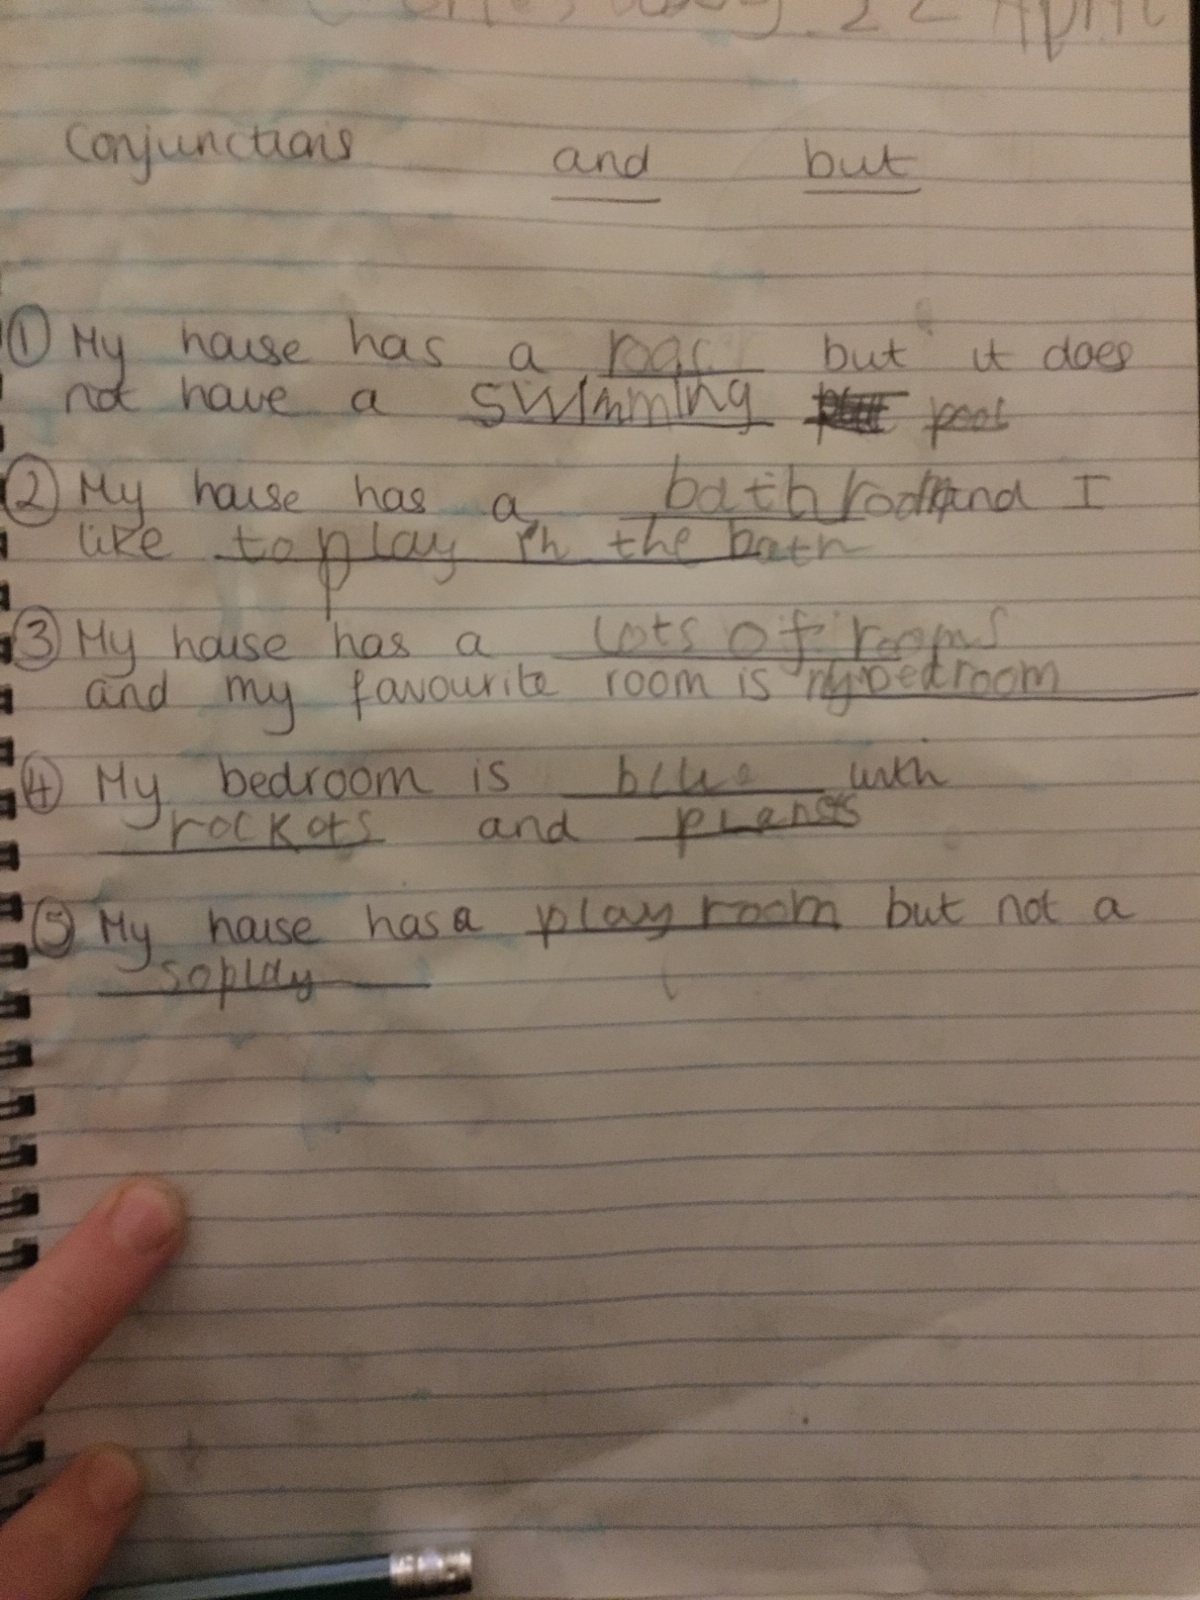 22 April
Conjunctions and but
① My house has a but it does
not have a swimming pool
② My house has a bathroom and I
like to play in the bath
③ My house has a lots of rooms
and my favourite room is my bedroom
④ My bedroom is blue with
rockots and
⑤ My house has a play room but not a
soplay